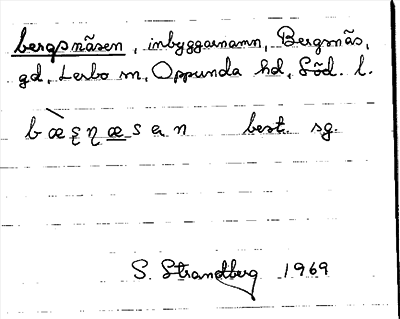 bergsnäsen, inbyggarnamn, Bergsnäs,
gd, Lerbo sn, Oppunda hd, Söd. l.
best. sg.
S. Strandberg 1969